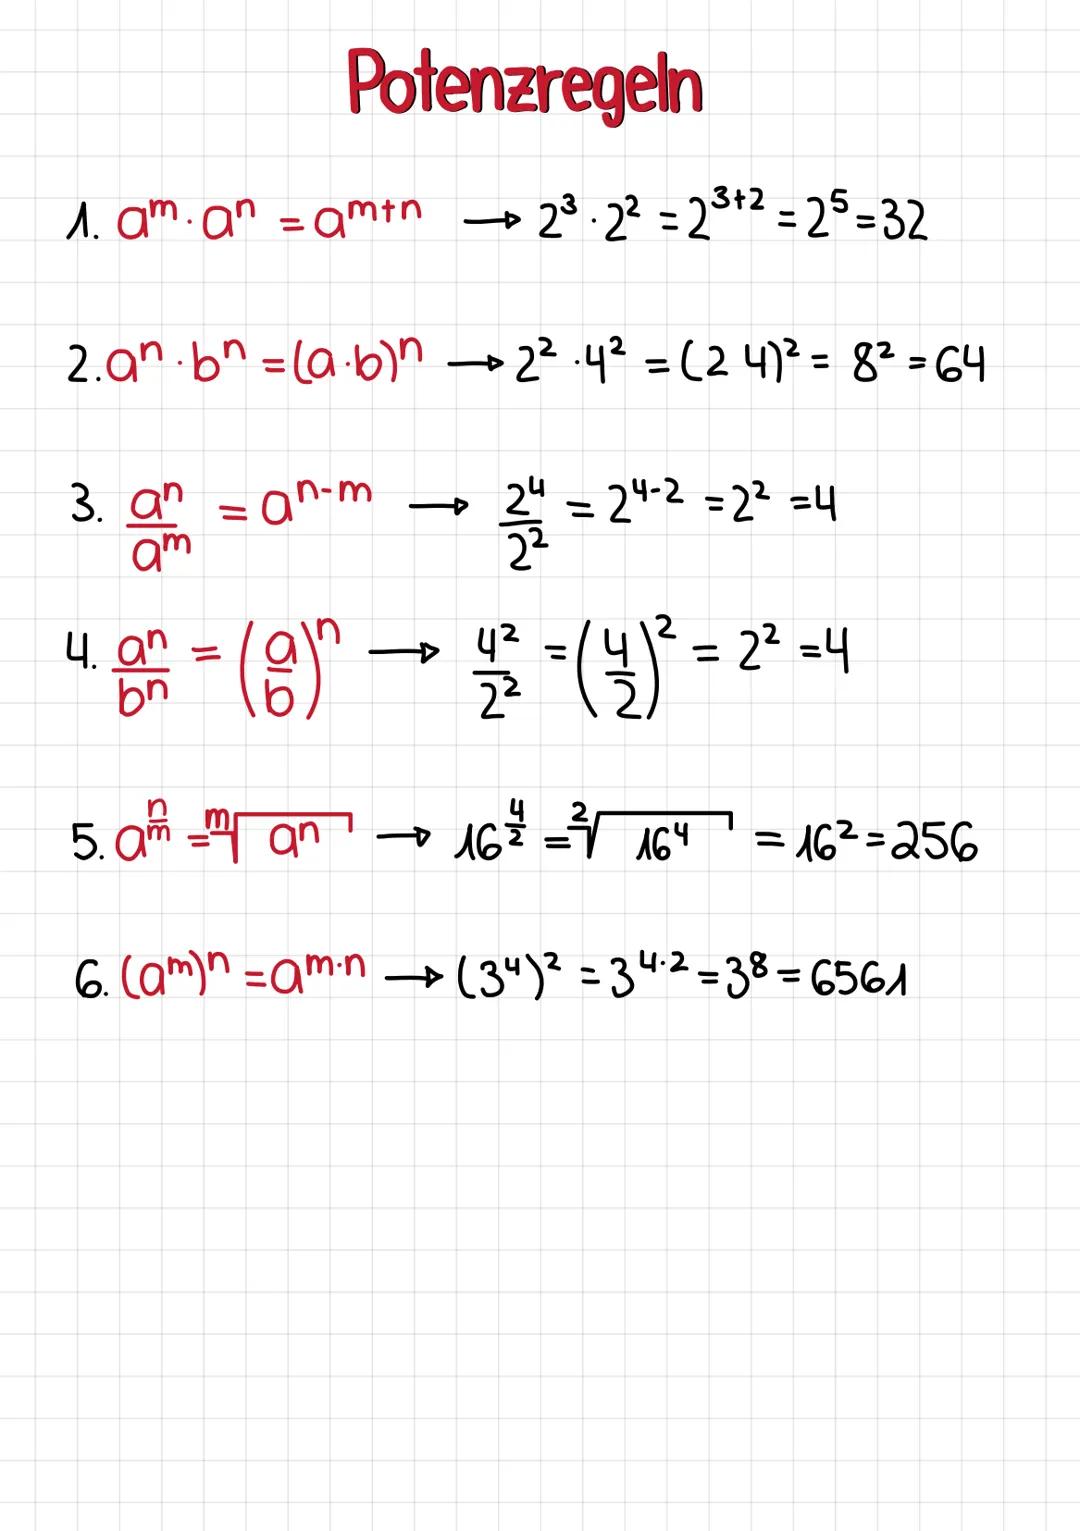 Potenzregeln
1. aᵐ · aⁿ = aᵐ⁺ⁿ → 2³ · 2² = 2³⁺² = 2⁵ = 32
2. aⁿ · bⁿ = (a · b)ⁿ → 2² · 4² = (2 4)² = 8² = 64
3. aⁿ/aᵐ = aⁿ⁻ᵐ → 2⁴/2² = 2⁴⁻² = 2² = 4
4. aⁿ/bⁿ = (a/b)ⁿ → 4²/2² = (4/2)² = 2² = 4
5. a^(n/m) = ᵐ√aⁿ → 16^(4/2) = ²√16⁴ = 16² = 256
6. (aᵐ)ⁿ = a^(m·n) → (3⁴)² = 3^(4·2) = 3⁸ = 6561